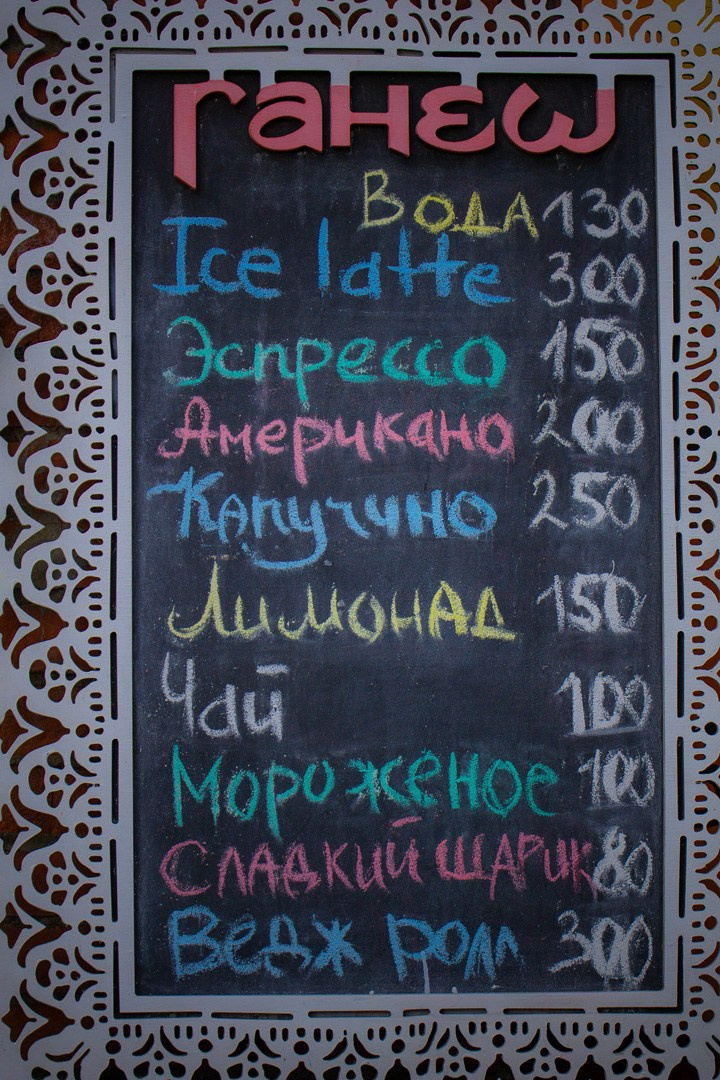 ганеш
Вода 130
Ice latte 300
Эспрессо 150
Американо 200
Капучино 250
Лимонад 150
Чай 100
Мороженое 100
Сладкий шарик 80
Ведж ролл 300